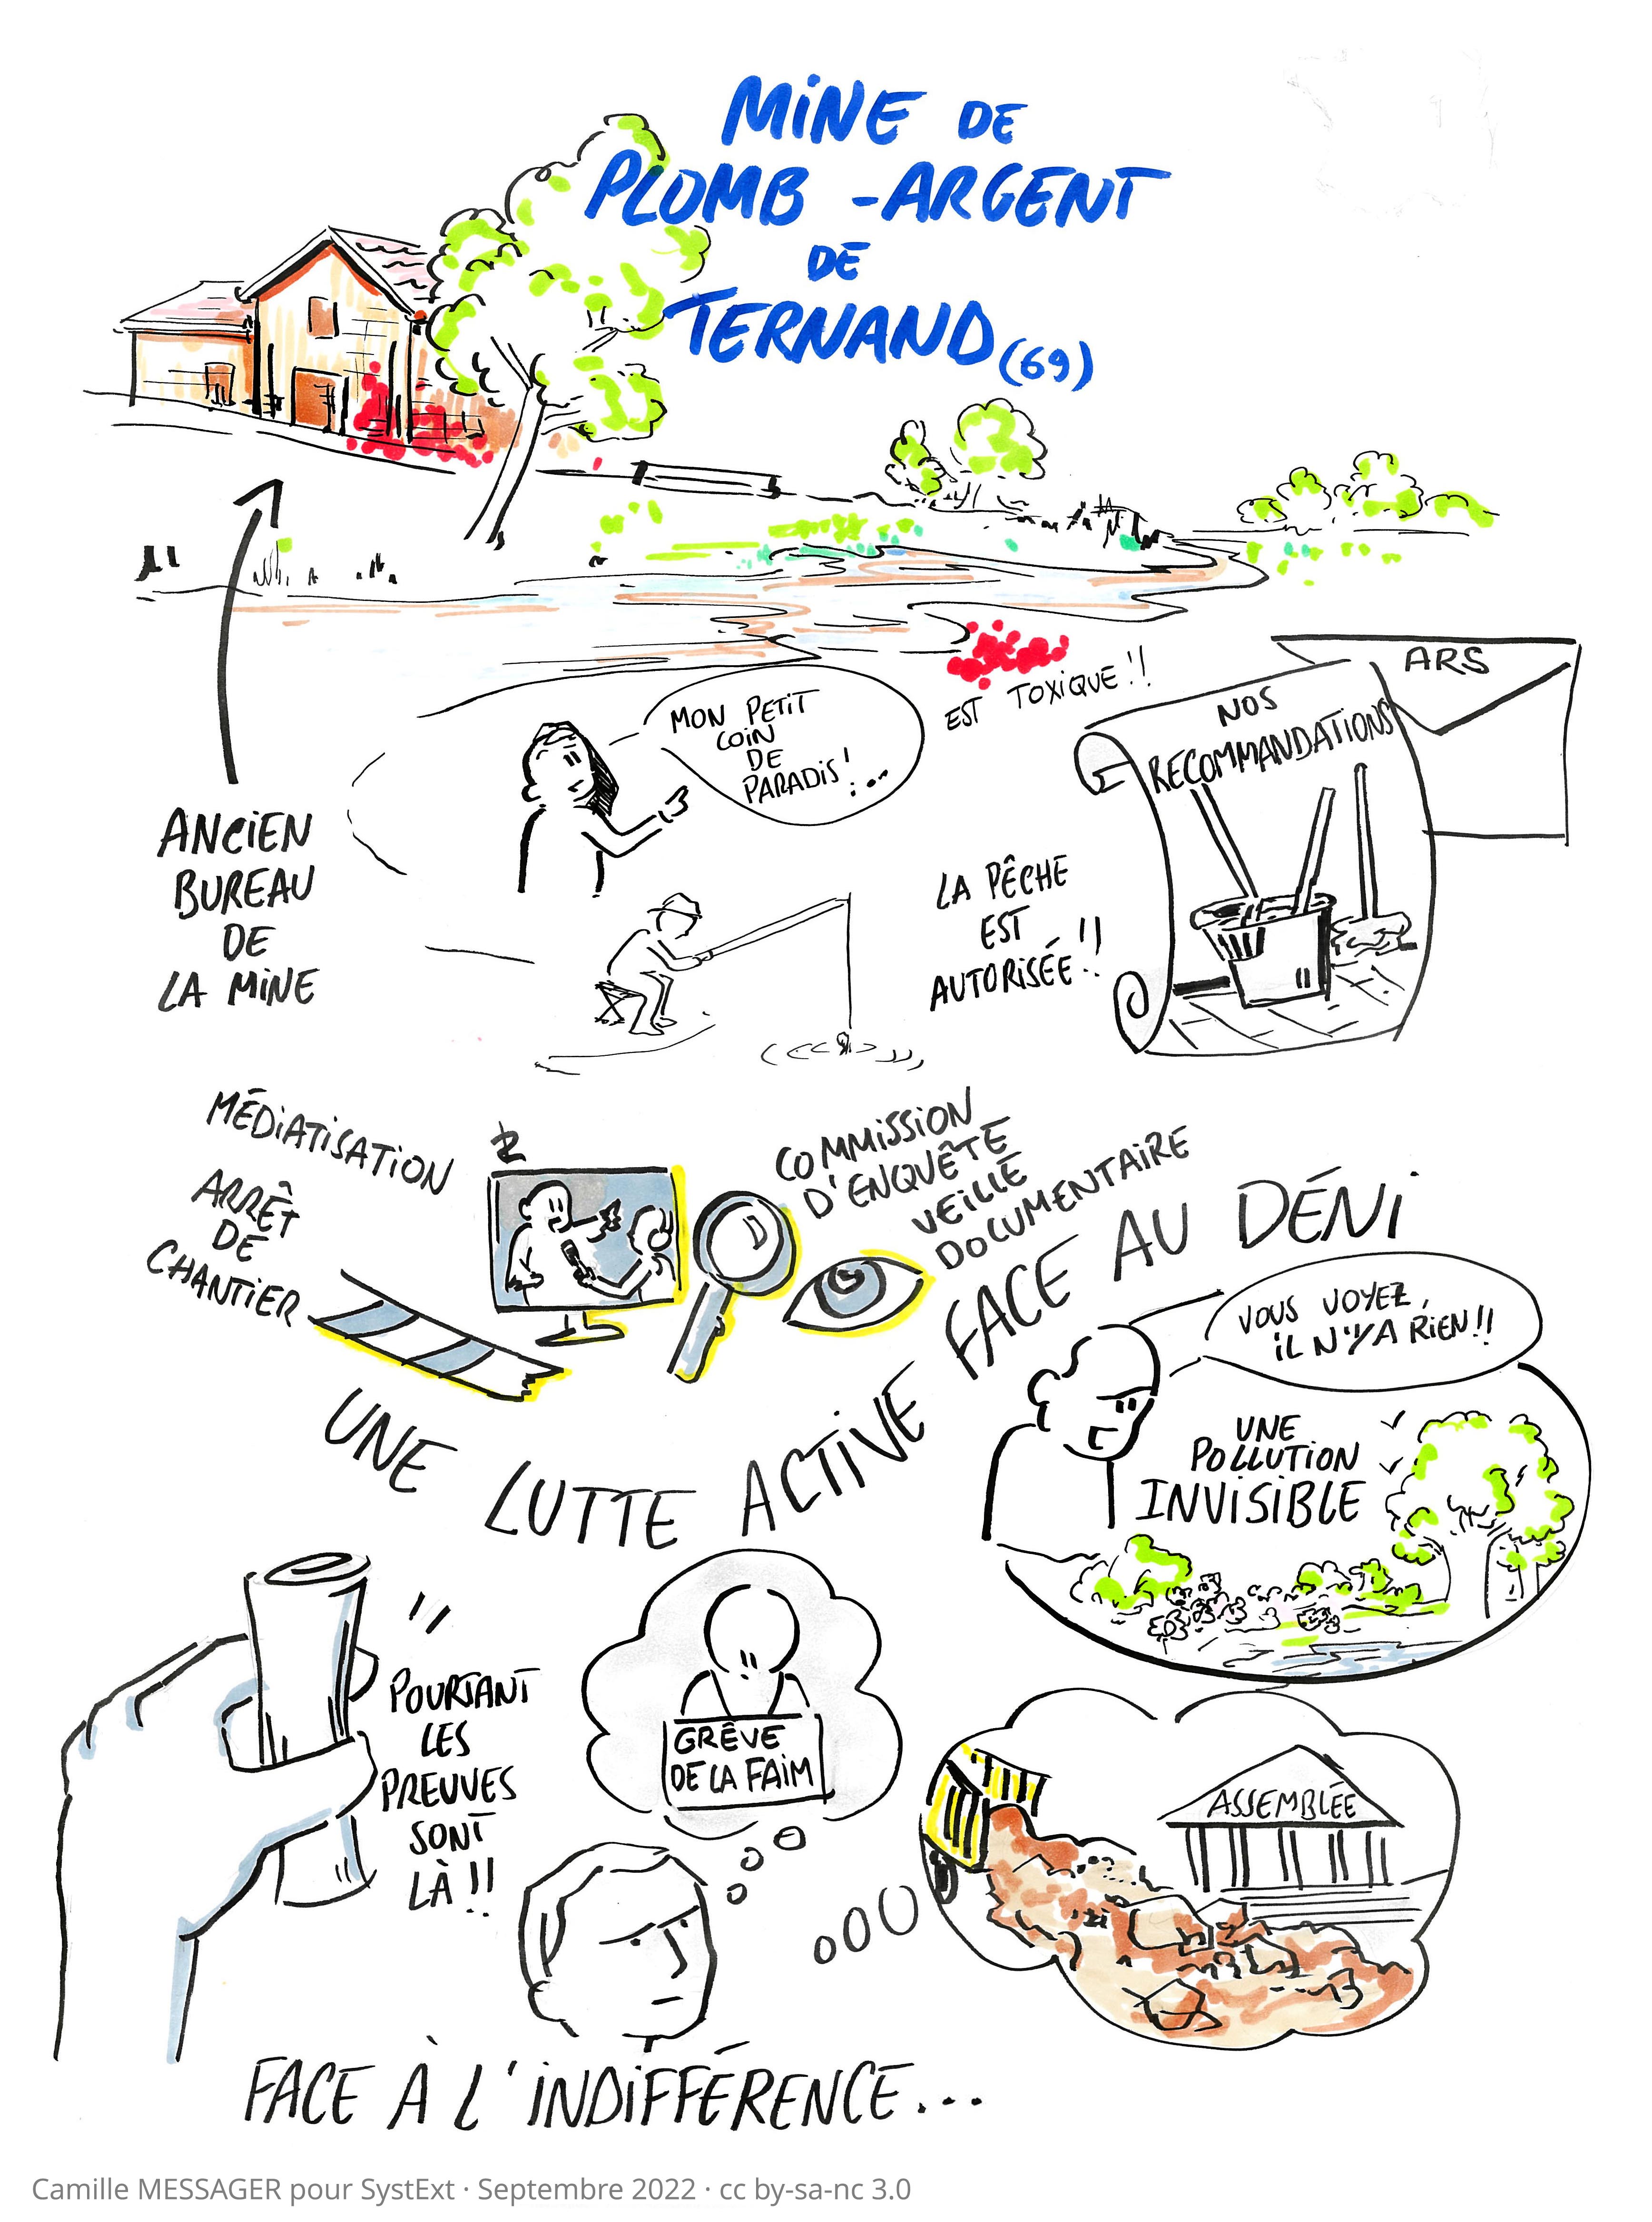 MINE DE
PLOMB - ARGENT
DE
TERNAND (69)
EST TOXIQUE !!
ARS
NOS
RECOMMANDATIONS
MON PETIT
COIN
DE
PARADIS ! ...
ANCIEN
BUREAU
DE
LA MINE
LA PÊCHE
EST
AUTORISÉE !!
MÉDIATISATION
ARRÊT
DE
CHANTIER
COMMISSION
D'ENQUÊTE
VEILLE
DOCUMENTAIRE
UNE LUTTE ACTIVE FACE AU DÉNI
VOUS VOYEZ,
IL N'Y A RIEN !!
UNE
POLLUTION
INVISIBLE
POURTANT
LES
PREUVES
SONT
LÀ !!
GRÊVE
DE LA FAIM
ASSEMBLÉE
FACE À L'INDIFFÉRENCE...
Camille MESSAGER pour SystExt · Septembre 2022 · cc by-sa-nc 3.0